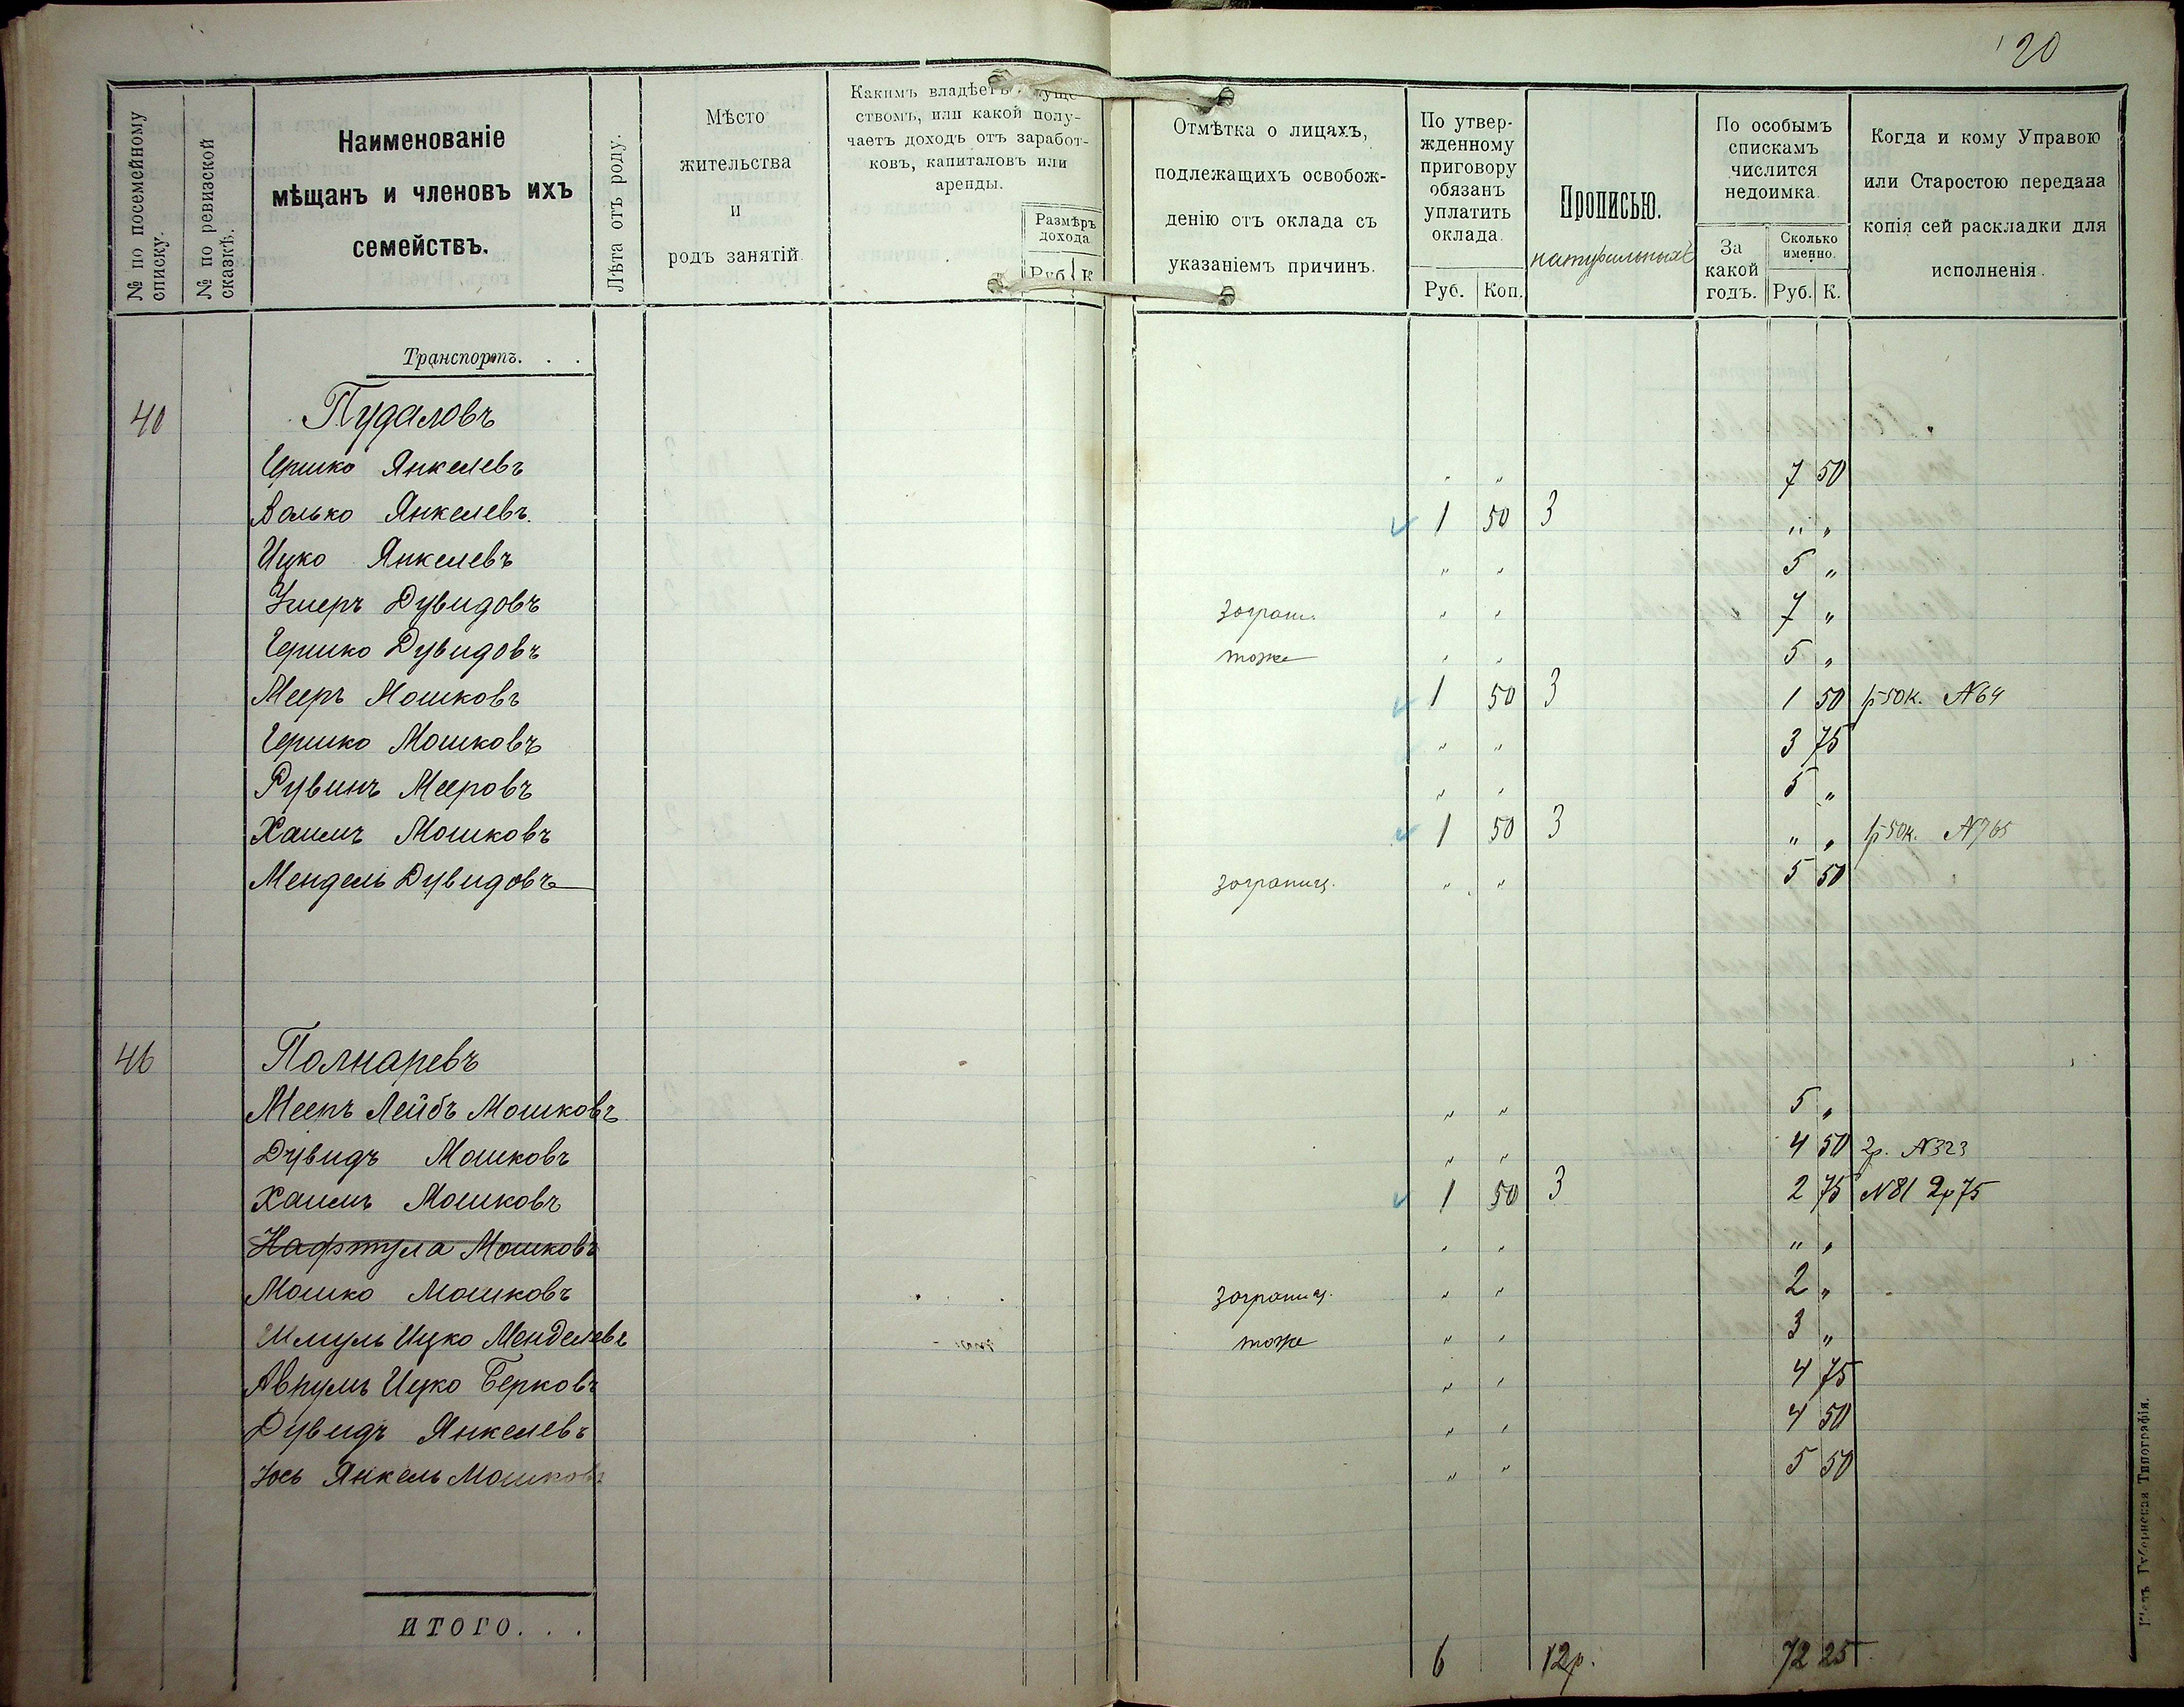 20
№ по посемейному списку.
№ по ревизской сказкѣ.
Наименованіе
мѣщанъ и членовъ ихъ
семействъ.
Лѣта отъ роду.
Мѣсто
жительства
и
родъ занятій.
Какимъ владѣетъ
ствомъ, или какой полу-
чаетъ доходъ отъ заработ-
ковъ, капиталовъ или
аренды.
Размѣръ
дохода
Руб. К
Отмѣтка о лицахъ,
подлежащихъ освобож-
денію отъ оклада съ
указаніемъ причинъ.
По утвер-
жденному
приговору
обязанъ
уплатить
оклада.
Руб. Коп.
Прописью.
натуральныхъ
По особымъ
спискамъ
числится
недоимка.
За
какой
годъ.
Сколько
именно.
Руб. К.
Когда и кому Управою
или Старостою передана
копія сей раскладки для
исполненія.
Транспортъ. . .
40 Пудаловъ
Гершко Янкелевъ " " 7 50
Волько Янкелевъ 1 50 3 " "
Ицко Янкелевъ " " 5 "
Дувидовъ заграни. " " 7 "
Гершко Дувидовъ тоже " " 5 "
Мееръ Мошковъ 1 50 3 1 50 1р 50к. №64
Гершко Мошковъ " " 3 75
Рувинъ Мееровъ " " 5 "
Хаимъ Мошковъ 1 50 3 " " 1р 50к. №765
Мендель Дувидовъ заграниц. " " 5 50
46 Полнаревъ
Мееръ Лейбъ Мошковъ " " 5 "
Дувидъ Мошковъ " " 4 50 2р. №323
Хаимъ Мошковъ 1 50 3 2 75 №81 2р75
Нафтула Мошковъ " " " "
Мошко Мошковъ заграниц. " " 2 "
Шмуль Ицко Менделевъ тоже " " 3 "
Аврумъ Ицко Берковъ " " 4 75
Дувидъ Янкелевъ " " 4 50
Іось Янкель Мошковъ " " 5 50
ИТОГО. . . 6 12р. 72 25
Губернская Типографія.